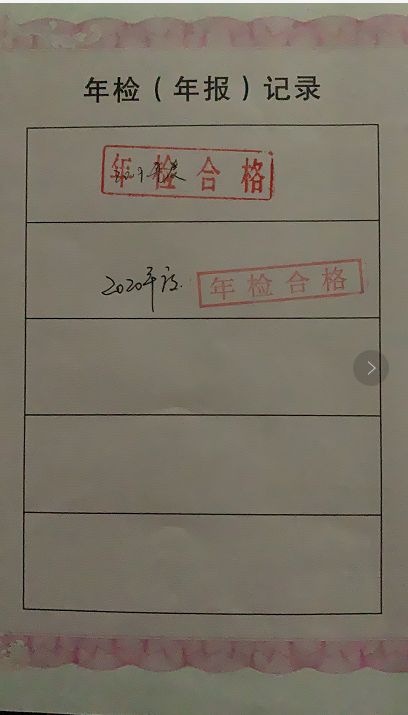 年检（年报）记录
年检合格
2020年度 年检合格